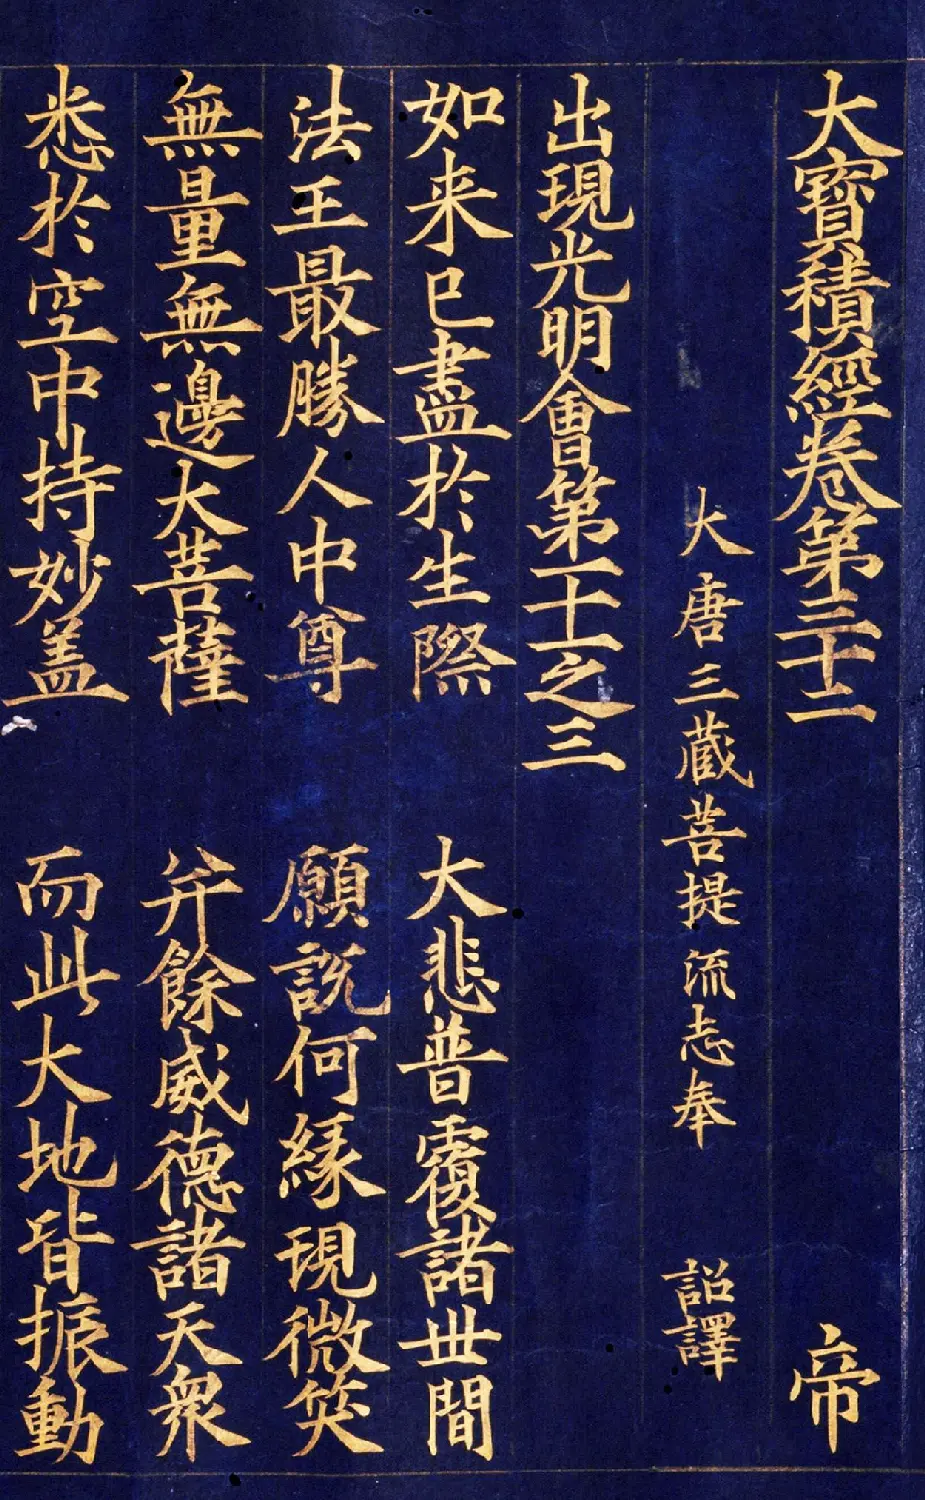 大寳積經卷第三十二 帝
大唐三蔵菩提流志奉 詔譯
出現光明會第十一之三
如来已盡於生際 大悲普覆諸世間
法王最勝人中尊 願説何縁現微笑
無量無邊大菩薩 并餘威德諸天衆
悉於空中持妙盖 而此大地皆振動